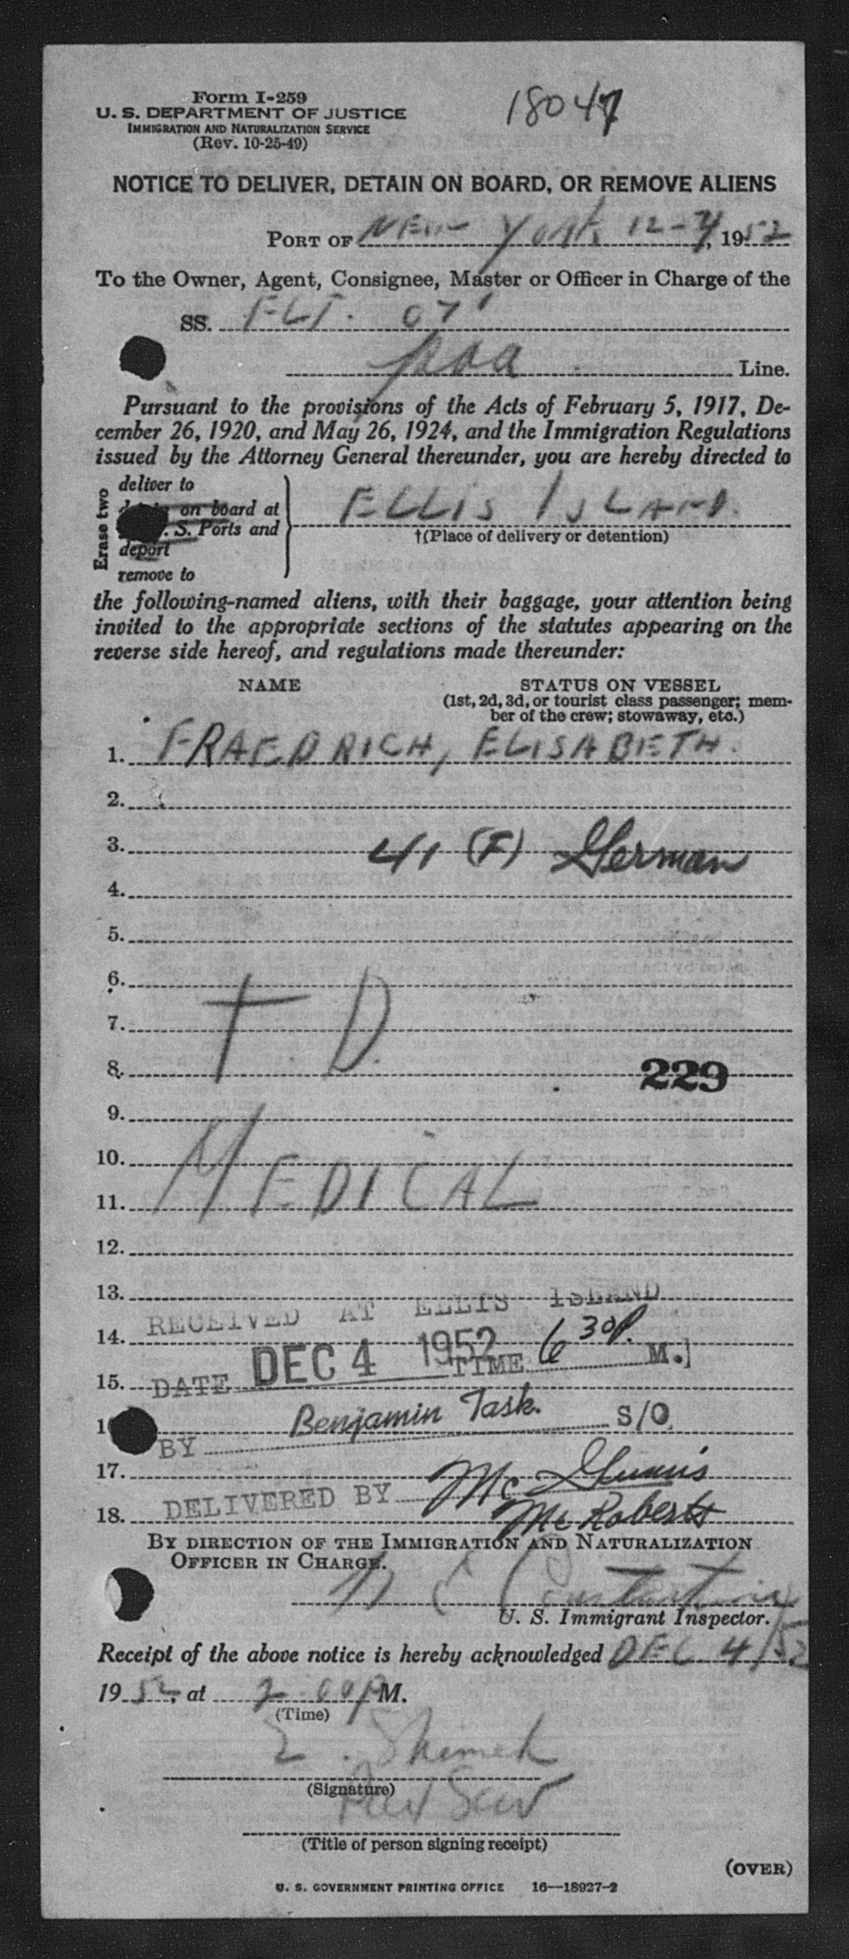 Form I-259
18047
U. S. DEPARTMENT OF JUSTICE
IMMIGRATION AND NATURALIZATION SERVICE
(Rev. 10-25-49)
NOTICE TO DELIVER, DETAIN ON BOARD, OR REMOVE ALIENS
PORT OF NEW York, 12-4, 1952
To the Owner, Agent, Consignee, Master or Officer in Charge of the
SS. FLT. 071
paa Line.
Pursuant to the provisions of the Acts of February 5, 1917, De-
cember 26, 1920, and May 26, 1924, and the Immigration Regulations
issued by the Attorney General thereunder, you are hereby directed to
Erase two
deliver to
on board at
S. Ports and
deport
remove to
ELLIS ISLAND.
†(Place of delivery or detention)
the following-named aliens, with their baggage, your attention being
invited to the appropriate sections of the statutes appearing on the
reverse side hereof, and regulations made thereunder:
NAME STATUS ON VESSEL
(1st, 2d, 3d, or tourist class passenger; mem-
ber of the crew; stowaway, etc.)
1. FRAEDRICH, ELISABETH.
2.
3. 41 (F) German
4.
5.
6.
7. T D.
8. 229
9.
10.
11. MEDICAL
12.
13.
RECEIVED AT ELLIS ISLAND
14.
DATE DEC 4 1952 TIME 6 30 P. M.
15.
Benjamin Task.
BY S/O
17. Mc
18. DELIVERED BY Mc Roberts
BY DIRECTION OF THE IMMIGRATION AND NATURALIZATION
OFFICER IN CHARGE.
U. S. Immigrant Inspector.
Receipt of the above notice is hereby acknowledged DEC 4/52
1952, at 2:00 P M.
(Time)
(Signature)
(Title of person signing receipt)
(OVER)
U. S. GOVERNMENT PRINTING OFFICE 16—18927-2